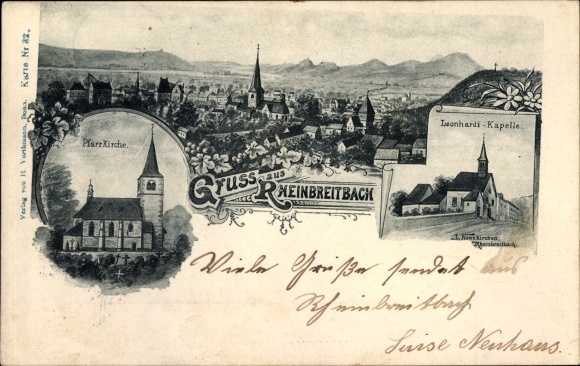 Verlag von H. Vorthmann, Bonn. Karte Nr 32.
Pfarrkirche.
Leonhardi-Kapelle.
Gruss aus
Rheinbreitbach
Rheinbreitbach.
Viele Grüße sendet aus
Rheinbreitbach
Luise Neuhaus.